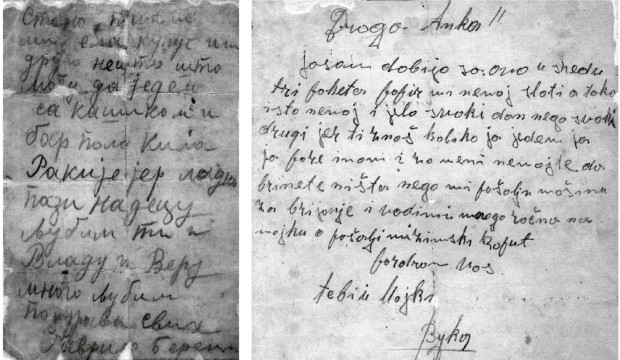 Стано, пошљи
ми купус или
друго нешто што
могу да једем
са кашиком и
бар пола кила
Ракије јер ладно
пази на децу
љубим ти и
Владу и Веру
много љубим
поздрав свима
Гаврило
Draga Anka!!
Jasam dobijo u sredu
tri paketa papir mi nemoj slati a tako
isto nemoj i jelo svaki dan nego svaki
drugi jer ti znaš kolko ja jedem ja
ja pare imam i za meni nemojte da
brinete ništa nego mi pošalji mašinu
za brijanje i vodimi mnogo računa na
majku a pošalji mi zimski kaput
pozdrav vas
tebi i Majka